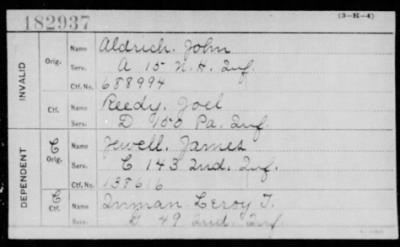 182937
(3-H-4)
INVALID
Orig. Name Aldrich. John
Serv. A 15 N.H. Inf.
Ctf. No. 688994
Ctf. Name Reedy. Joel
Serv. D 150 Pa. Inf.
DEPENDENT
C Orig. Name Jewell. James
Serv. C 143 Ind. Inf.
Ctf. No. 138616
C Ctf. Name Inman. Leroy T.
Serv. D 49 Ind. Inf.